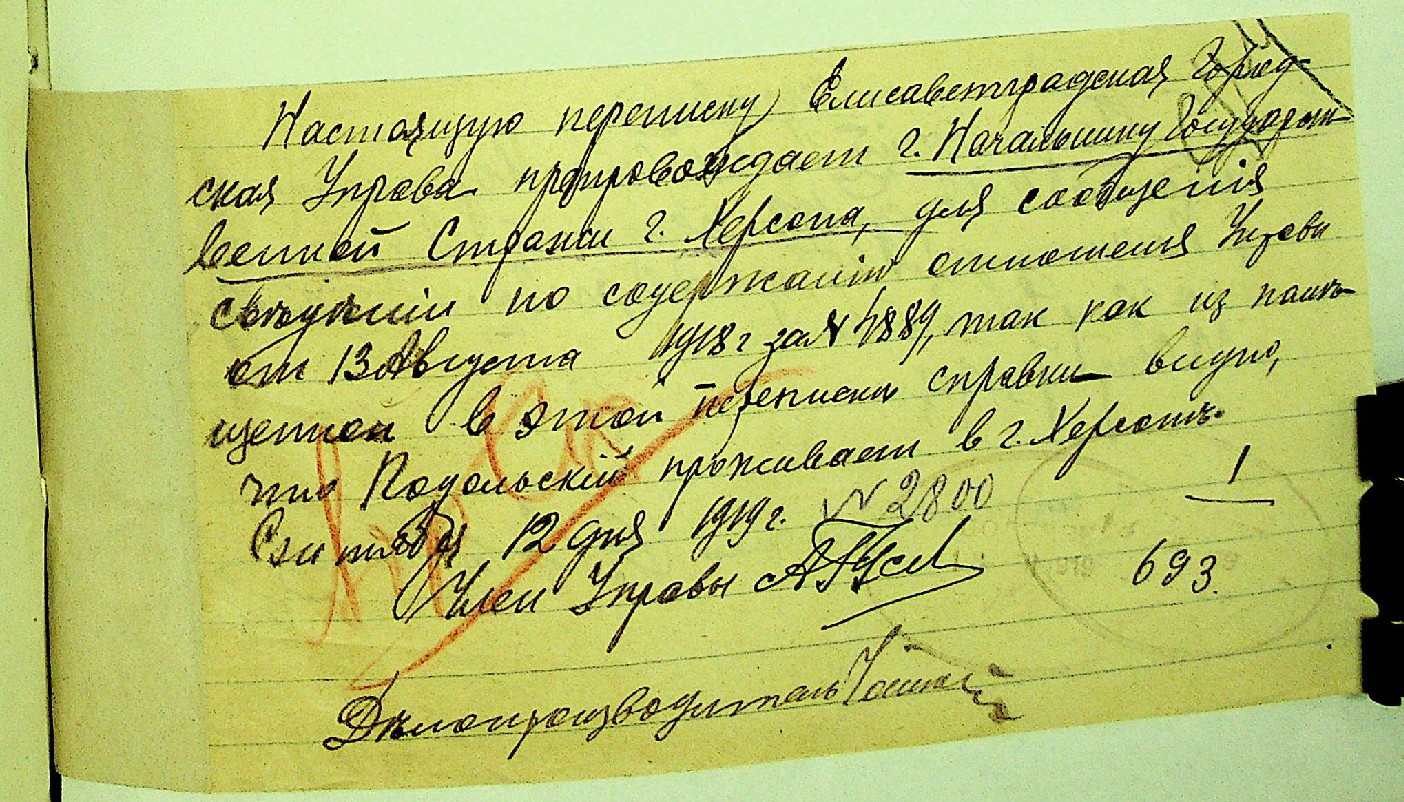 Настоящую переписку Елисаветградская Город-
ская Управа препровождает г. Начальнику Государст-
венной Стражи г. Херсона, для сообщенія
свѣдѣній по содержанію отношенія Управы
от 13 Августа 1918 г за № 4889, так как из помѣ-
щенной в этой переписки справки видно,
что Подольскій проживает в г. Херсонѣ.
Сентября 12 дня 1919 г. № 2800
1
Член Управы
693
Дѣлопроизводитель